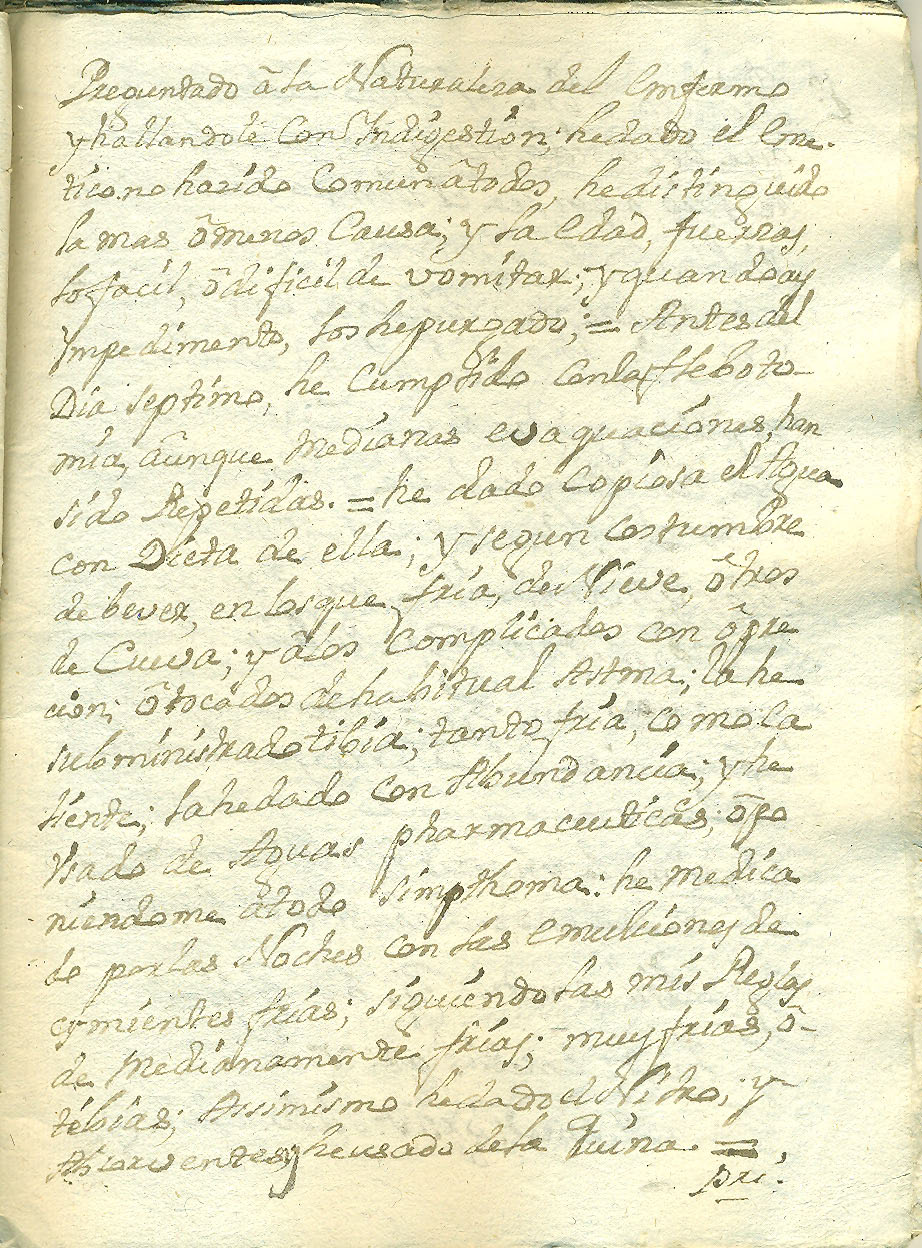 Preguntado â la Naturaleza del Enfermo
y hallandole Con Indigestion; hedado el Eme-
tico. no ha sido Comun âtodos, he distinguido
la mas ô menos Causa; y la Edad, fuerzas,
lo facil, ô dificil de vomitar; y quando ay
Ympedimento, los hepurgado; = Antes del
Dia septimo, he Cumplido conla fleboto-
mia, âunque Medianas evaquaciones, han
sido Repetidas. = he dado Copiosa el Agua
con Dieta de ella; y segun costumbre
de bever, en los que fria, de Nieve, ôtros
de Cueva; y âlos Complicados con ôpre
cion; ôtocados dehabitual Astma; la he
subministrado tibia; tanto fria, como ca
liente; la hedado con Abundancia; y he
Vsado de Aguas pharmaceuticas; ôpo
niendome âtodo simpthoma: he medica
do por las Noches con las emulciones de
cymientes frias; siguiendo las mis Reglas
de Medianamente frias; muy frias, ô-
tibias; Assimismo hedado el Nitro; y
Absorventes y heusado de la Quina. =
pri.